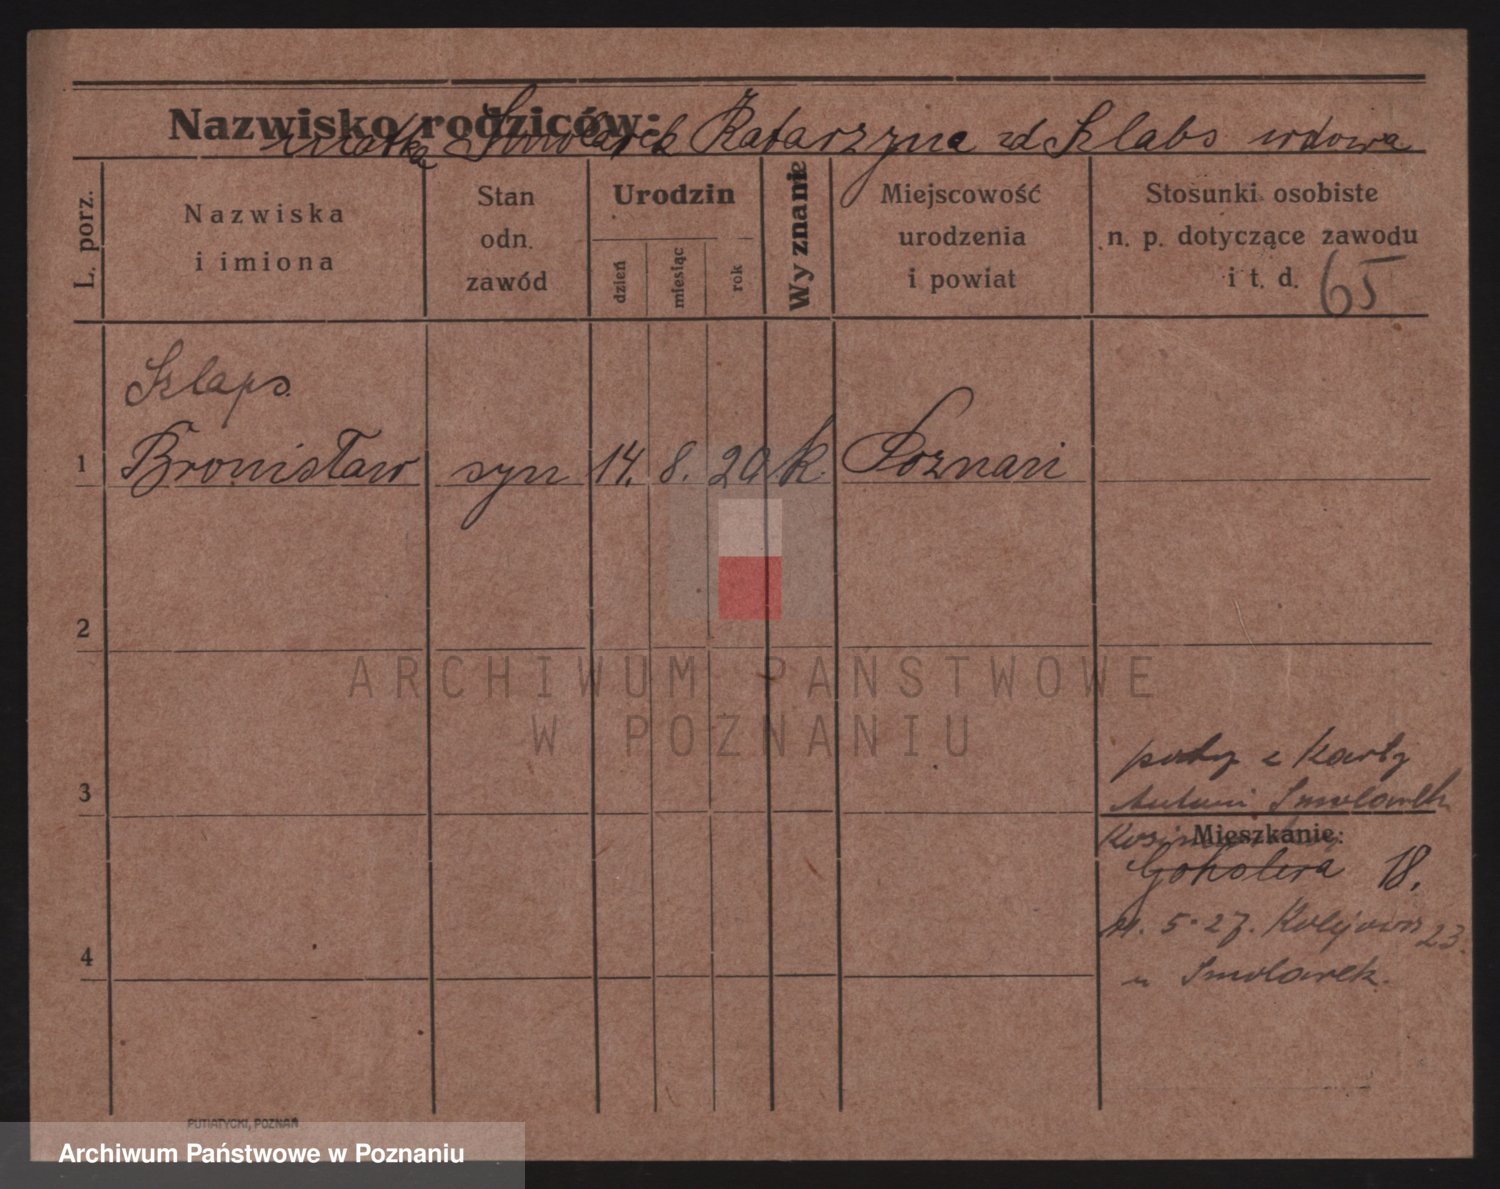 Nazwisko rodziców:
matka Smolarek Katarzyna zd Sklabs wdowa
L. porz.
Nazwiska
i imiona
Stan
odn.
zawód
Urodzin
dzień
miesiąc
rok
Wyznanie
Miejscowość
urodzenia
i powiat
Stosunki osobiste
n. p. dotyczące zawodu
i t. d. 65
Szlaps
1 Bronisław syn 14. 8. 20 k. Poznań
2
3
4
z Karty
Antoni Smolarek
Mieszkanie:
18.
11. 5. 27. Kolejowa 23.
u Smolarek.
PUTIATYCKI, POZNAŃ
ARCHIWUM PAŃSTWOWE
W POZNANIU
Archiwum Państwowe w Poznaniu